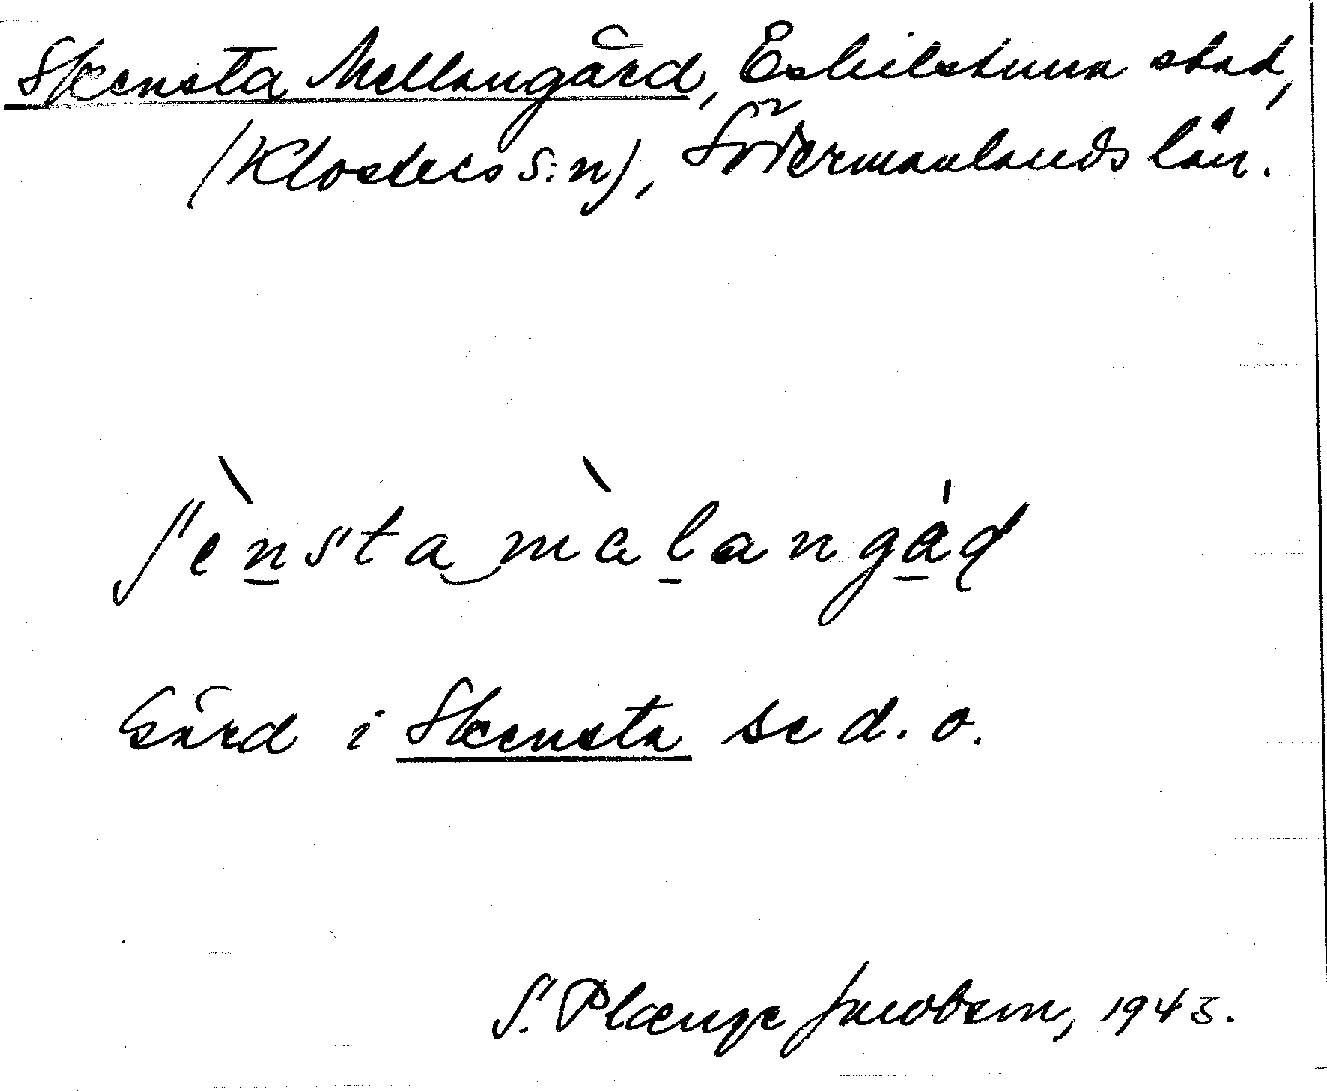 Skensta Mellangård, Eskilstuna stad,
(Klosters s:n), Södermanlands län.
Gård i Skensta se d. o.
S. Plænge Jacobson, 1943.